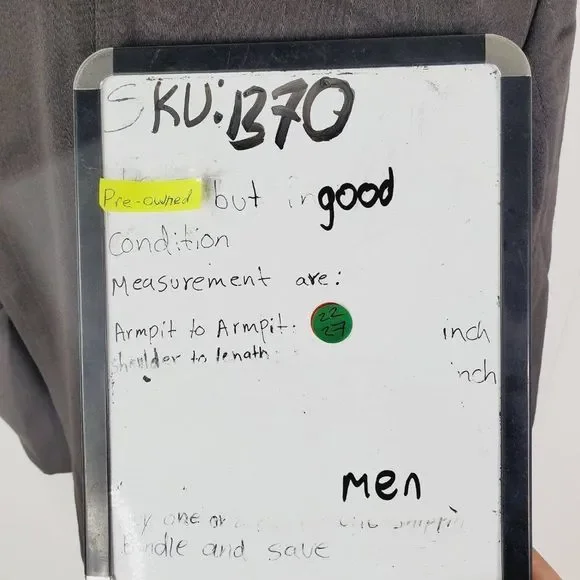 SKU: 1370
Pre-owned but in good
Condition
Measurement are:
Armpit to Armpit: 22 inch
shoulder to lenath: 27 inch
men
one or
Bundle and save